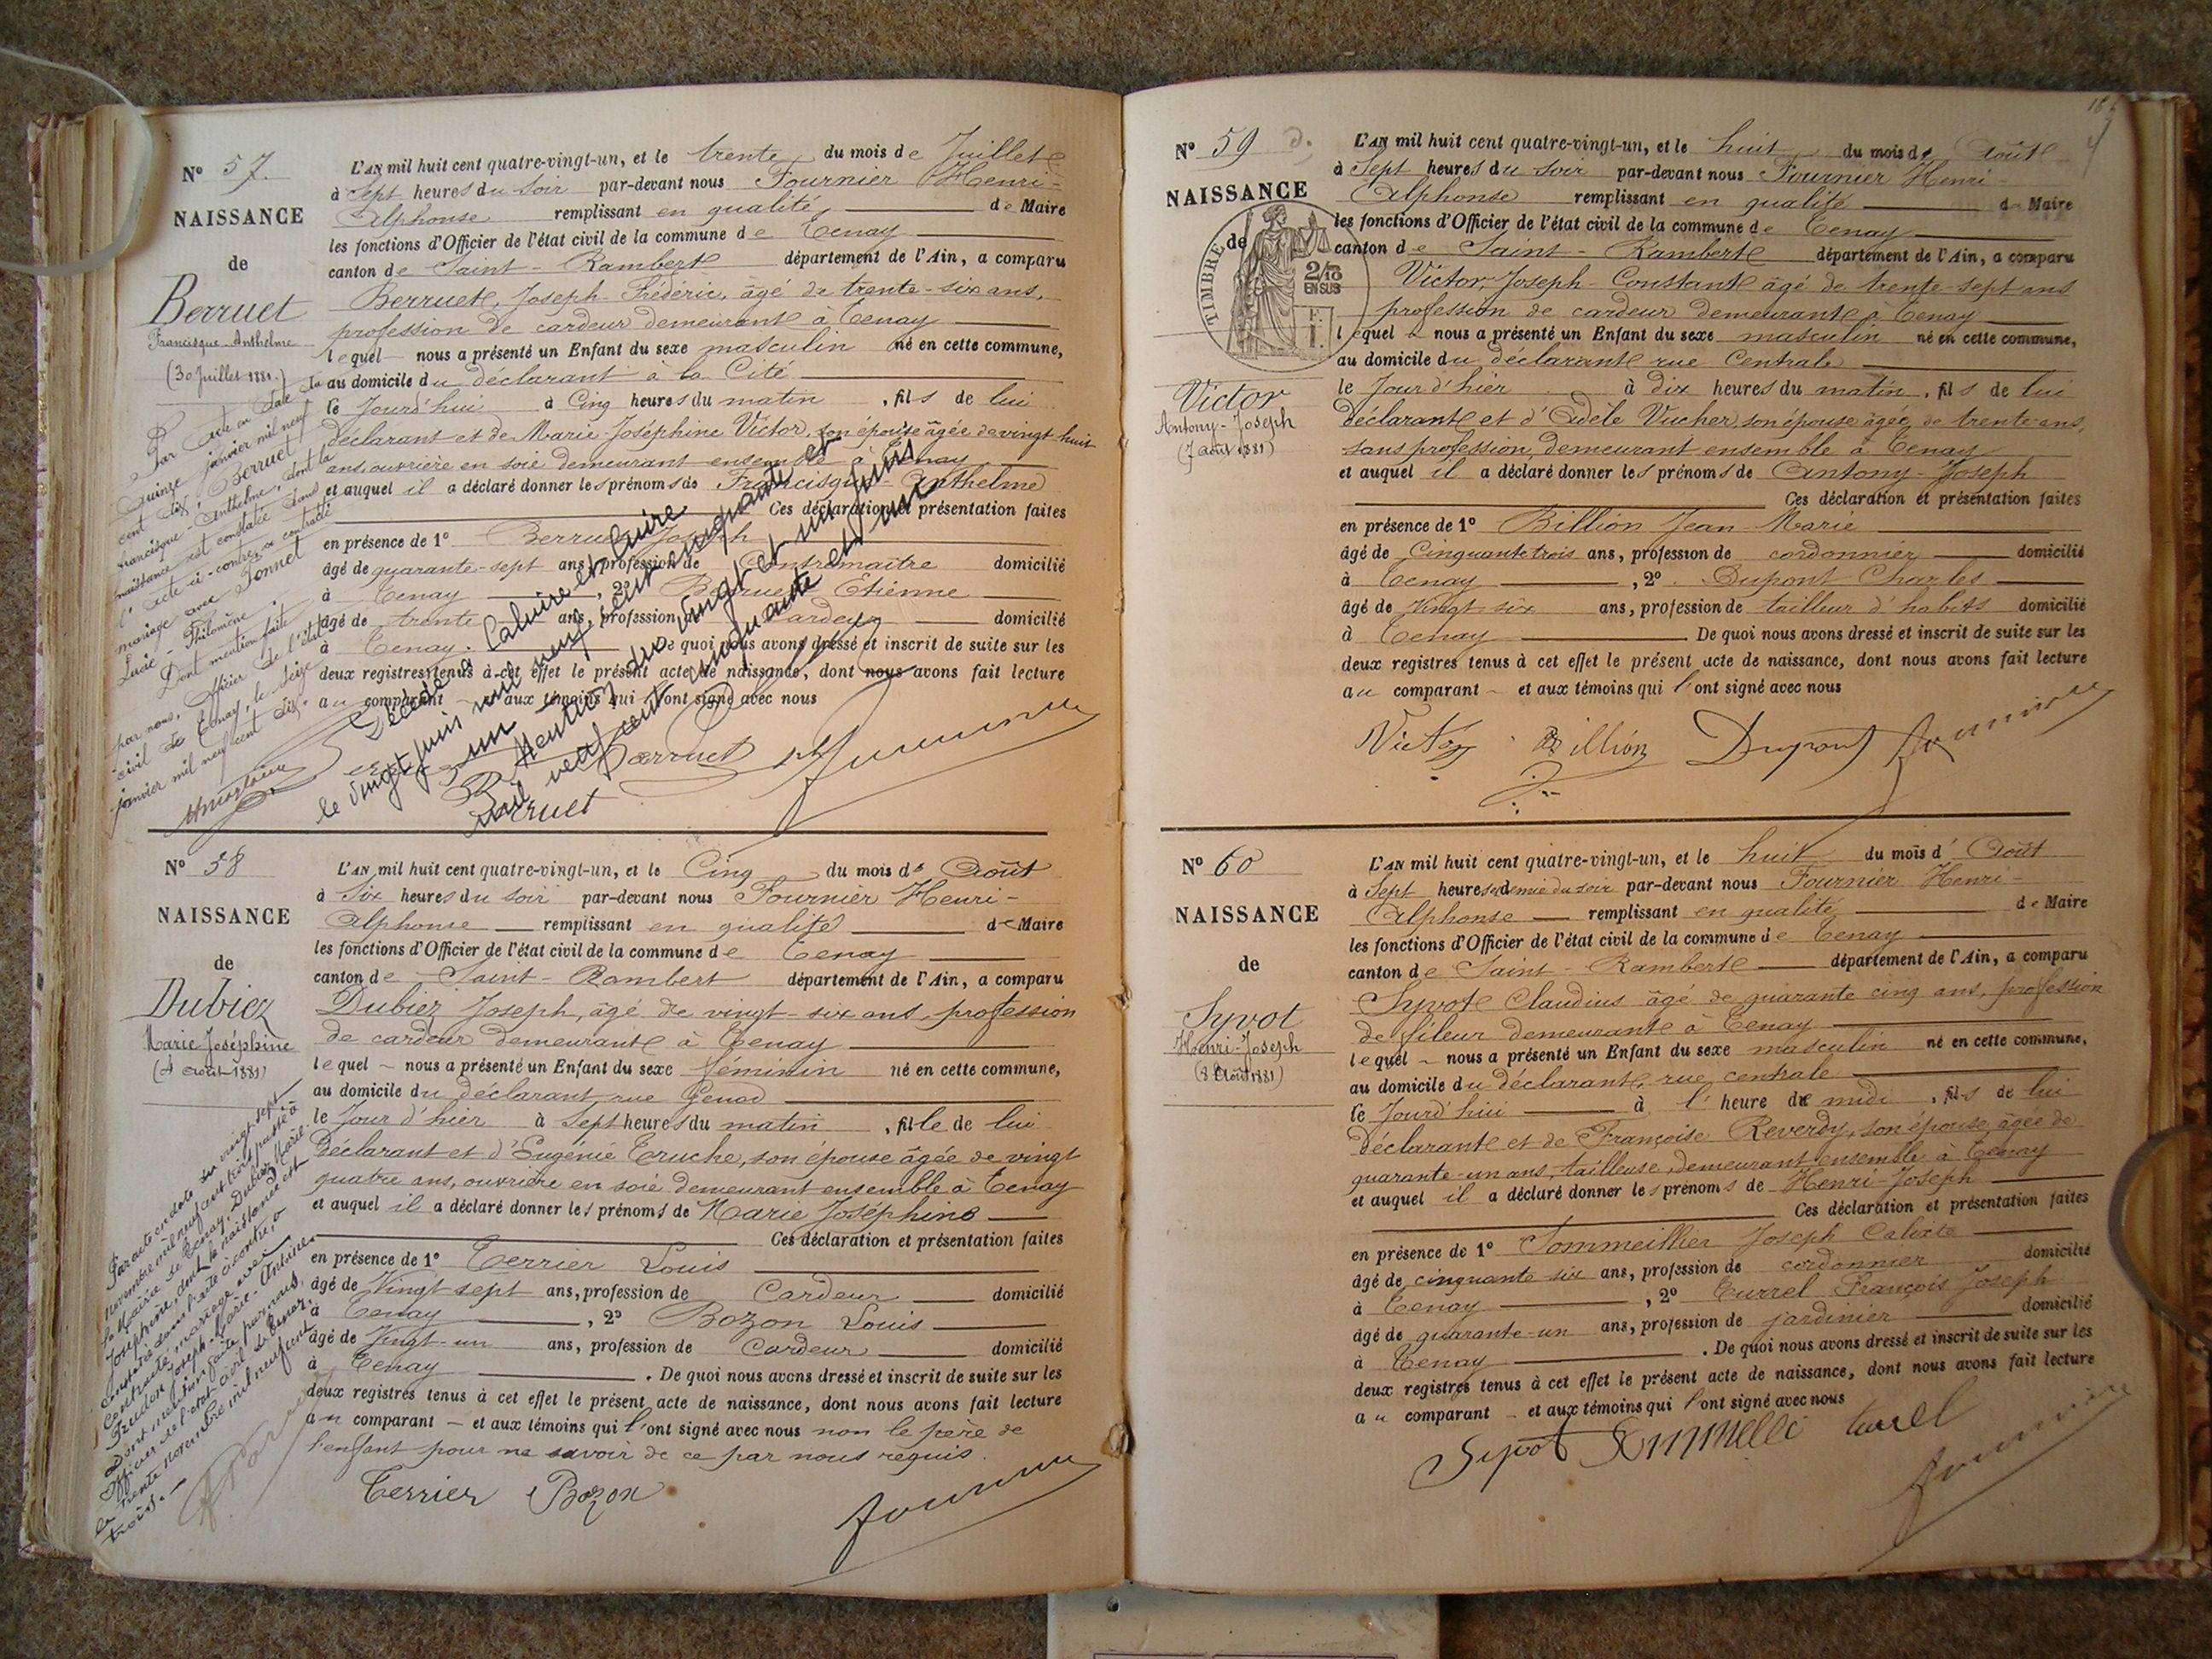 N° 57.
NAISSANCE
de
Berruet
Francisque-Anthelme
(30 Juillet 1881.)
L'AN mil huit cent quatre-vingt-un, et le trente du mois de Juillet
à Sept heures du soir par-devant nous Fournier Henri-
Alphonse remplissant en qualité de Maire
les fonctions d'Officier de l'état civil de la commune de Tenay
canton de Saint-Rambert département de l'Ain, a comparu
Berruet, Joseph-Frédéric, âgé de trente-six ans,
profession de cardeur demeurant à Tenay
lequel nous a présenté un Enfant du sexe masculin né en cette commune,
au domicile du déclarant à la Cité
le Jourd'hui à Cinq heures du matin, fils de lui
déclarant et de Marie Joséphine Victor, son épouse âgée de vingt huit
ans, ouvrière en soie demeurant ensemble à Tenay
et auquel il a déclaré donner les prénoms de Francisque-Anthelme
Ces déclaration et présentation faites
en présence de 1° Berruet Joseph
âgé de quarante-sept ans, profession de Contremaître domicilié
à Tenay, 2° Berruet Etienne
âgé de trente ans, profession de Cardeur domicilié
à Tenay. De quoi nous avons dressé et inscrit de suite sur les
deux registres tenus à cet effet le présent acte de naissance, dont nous avons fait lecture
au comparant et aux témoins qui l'ont signé avec nous
Berruet
Berruet
Fournier
Par acte en date
quinze janvier mil neuf
cent dix, Berruet
Francisque-Anthelme, dont la
naissance est constatée dans
l'acte ci-contre, a contracté
mariage avec Jonnet
Lucie-Philomène.
Dont mention faite
par nous, Officier de l'état
civil de Tenay, le seize
janvier mil neuf cent dix.
Décédé à Caluire et Cuire
le vingt juin mil neuf cent cinquante et
un Mention du vingt et un juin
mil neuf cent cinquante et un
N° 58
NAISSANCE
de
Dubiez
Marie Joséphine
(4 Août 1881)
L'AN mil huit cent quatre-vingt-un, et le Cinq du mois d'Août
à Six heures du soir par-devant nous Fournier Henri-
Alphonse remplissant en qualité de Maire
les fonctions d'Officier de l'état civil de la commune de Tenay
canton de Saint-Rambert département de l'Ain, a comparu
Dubiez Joseph, âgé de vingt-six ans, profession
de cardeur demeurant à Tenay
lequel nous a présenté un Enfant du sexe féminin né en cette commune,
au domicile du déclarant rue Genod
le Jour d'hier à Sept heures du matin, fille de lui
déclarant et d'Eugénie Truche, son épouse âgée de vingt
quatre ans, ouvrière en soie demeurant ensemble à Tenay
et auquel il a déclaré donner les prénoms de Marie Joséphine
Ces déclaration et présentation faites
en présence de 1° Terrier Louis
âgé de Vingt sept ans, profession de Cardeur domicilié
à Tenay, 2° Bozon Louis
âgé de Vingt-un ans, profession de Cardeur domicilié
à Tenay. De quoi nous avons dressé et inscrit de suite sur les
deux registres tenus à cet effet le présent acte de naissance, dont nous avons fait lecture
au comparant et aux témoins qui l'ont signé avec nous non le père de
l'enfant pour ne savoir de ce par nous requis.
Terrier Bozon
Fournier
Par acte en date du vingt sept
novembre mil neuf cent trois passé à
la Mairie de Tenay, Dubiez Marie
Joséphine, dont la naissance est
constatée dans l'acte ci-contre, a
contracté mariage avec
Joseph-Marie-Antoine.
Dont mention faite par nous,
Officier de l'état civil de Tenay,
le trente novembre mil neuf cent
trois.
N° 59
NAISSANCE
de
TIMBRE
2/10
EN SUS
Victor
Antony-Joseph
(7 août 1881)
L'AN mil huit cent quatre-vingt-un, et le huit du mois d'Août
à Sept heures du soir par-devant nous Fournier Henri
Alphonse remplissant en qualité de Maire
les fonctions d'Officier de l'état civil de la commune de Tenay
canton de Saint-Rambert département de l'Ain, a comparu
Victor Joseph-Constant âgé de trente-sept ans
profession de cardeur demeurant à Tenay
lequel nous a présenté un Enfant du sexe masculin né en cette commune,
au domicile du déclarant rue Centrale
le Jour d'hier à dix heures du matin, fils de lui
déclarant et d'Adèle Vucher, son épouse âgée de trente ans,
sans profession, demeurant ensemble à Tenay
et auquel il a déclaré donner les prénoms de Antony-Joseph
Ces déclaration et présentation faites
en présence de 1° Billion Jean-Marie
âgé de Cinquante trois ans, profession de cordonnier domicilié
à Tenay, 2° Dupont Charles
âgé de Vingt-six ans, profession de tailleur d'habits domicilié
à Tenay. De quoi nous avons dressé et inscrit de suite sur les
deux registres tenus à cet effet le présent acte de naissance, dont nous avons fait lecture
au comparant et aux témoins qui l'ont signé avec nous
Victor Billion Dupont Fournier
N° 60
NAISSANCE
de
Syvot
Henri-Joseph
(8 Août 1881)
L'AN mil huit cent quatre-vingt-un, et le huit du mois d'Août
à Sept heures et demie du soir par-devant nous Fournier Henri-
Alphonse remplissant en qualité de Maire
les fonctions d'Officier de l'état civil de la commune de Tenay
canton de Saint-Rambert département de l'Ain, a comparu
Syvot Claudius âgé de quarante cinq ans, profession
de fileur demeurant à Tenay
lequel nous a présenté un Enfant du sexe masculin né en cette commune,
au domicile du déclarant, rue centrale
le Jourd'hui à l'heure de midi, fils de lui
déclarant et de Françoise Reverdy, son épouse, âgée de
quarante-un ans, tailleuse, demeurant ensemble à Tenay
et auquel il a déclaré donner les prénoms de Henri-Joseph
Ces déclaration et présentation faites
en présence de 1° Sommeillier Joseph Calixte
âgé de cinquante six ans, profession de cordonnier domicilié
à Tenay, 2° Turrel François Joseph
âgé de quarante-un ans, profession de jardinier domicilié
à Tenay. De quoi nous avons dressé et inscrit de suite sur les
deux registres tenus à cet effet le présent acte de naissance, dont nous avons fait lecture
au comparant et aux témoins qui l'ont signé avec nous
Syvot turel
Fournier